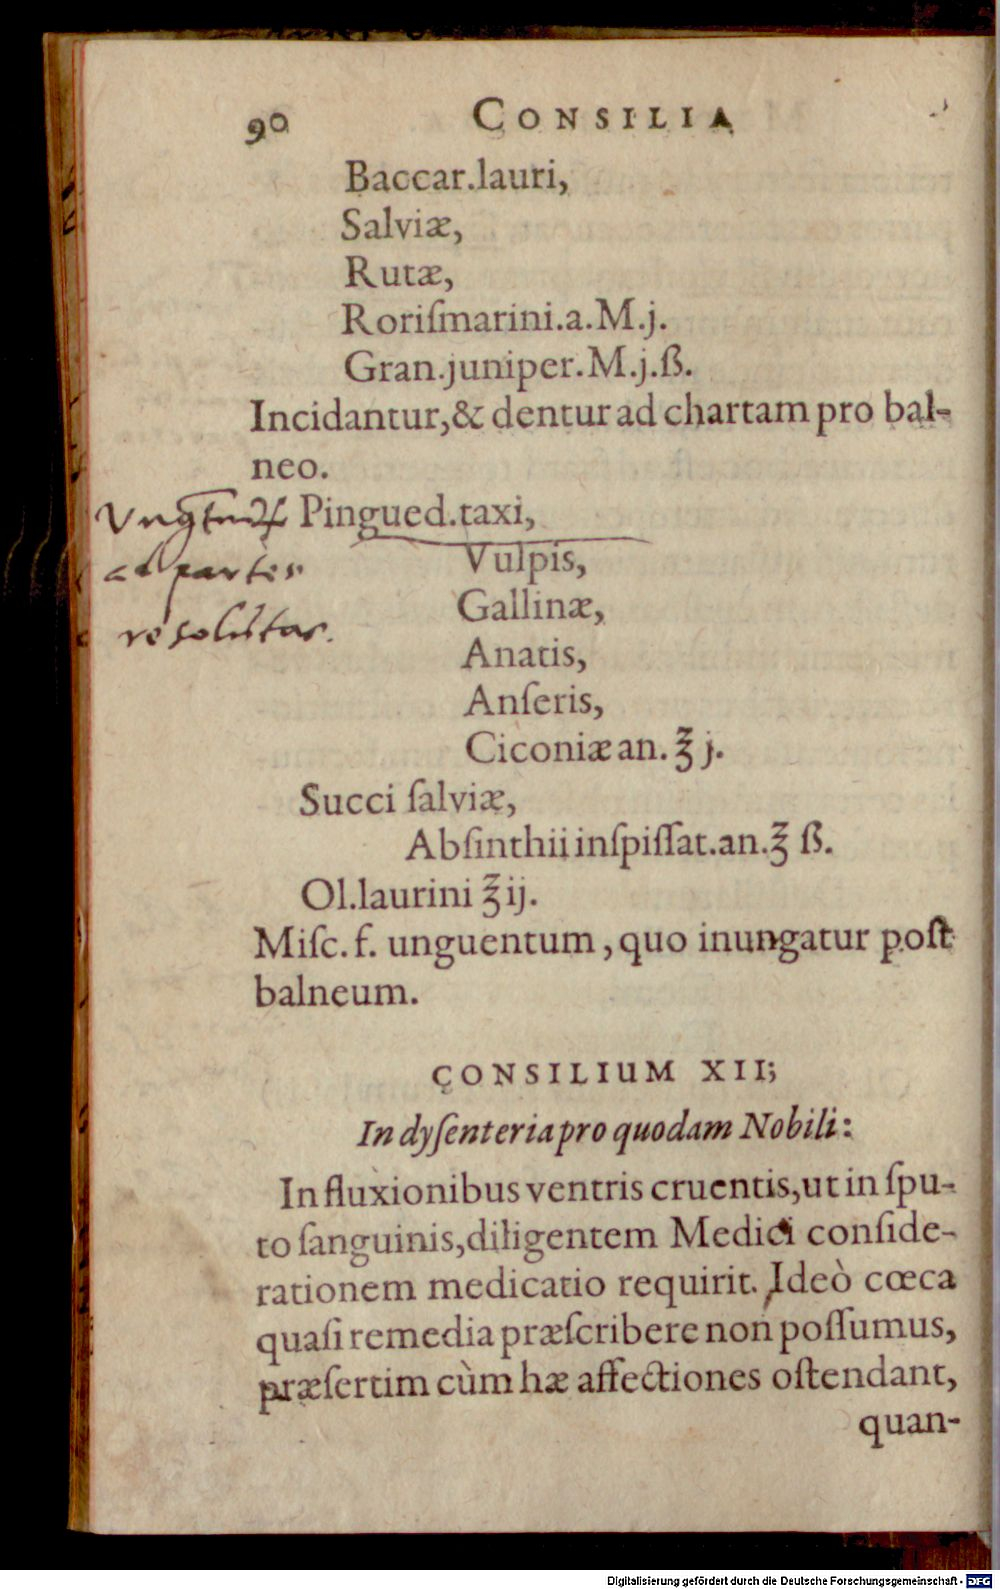 90 CONSILIA
Baccar.lauri,
Salviæ,
Rutæ,
Roriſmarini.a.M.j.
Gran.juniper.M.j.ß.
Incidantur,& dentur ad chartam pro bal-
neo.
Pingued.taxi,
Vulpis,
Gallinæ,
Anatis,
Anſeris,
Ciconiæ an. ℥ j.
ad partes
resolutas.
Succi ſalviæ,
Abſinthii inſpiſſat.an.℥ ß.
Ol.laurini ℥ ij.
Miſc. f. unguentum, quo inungatur poſt
balneum.
CONSILIUM XII;
In dyſenteria pro quodam Nobili:
In fluxionibus ventris cruentis,ut in ſpu-
to ſanguinis,diligentem Medici conſide-
rationem medicatio requirit. Ideò cœca
quaſi remedia præſcribere non poſſumus,
præſertim cùm hæ affectiones oſtendant,
quan-
Digitalisierung gefördert durch die Deutsche Forschungsgemeinschaft - DFG